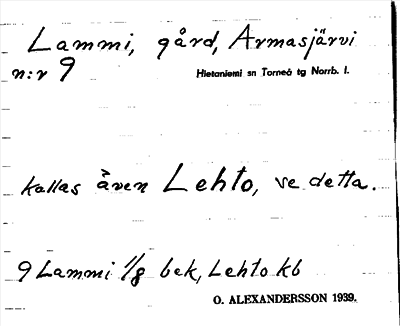 Lammi, gård, Armasjärvi
n:r 9
Hietaniemi sn Torneå tg Norrb. l.
kallas även Lehto, se detta.
9 Lammi 1/8 bek, Lehto kb
O. ALEXANDERSSON 1939.